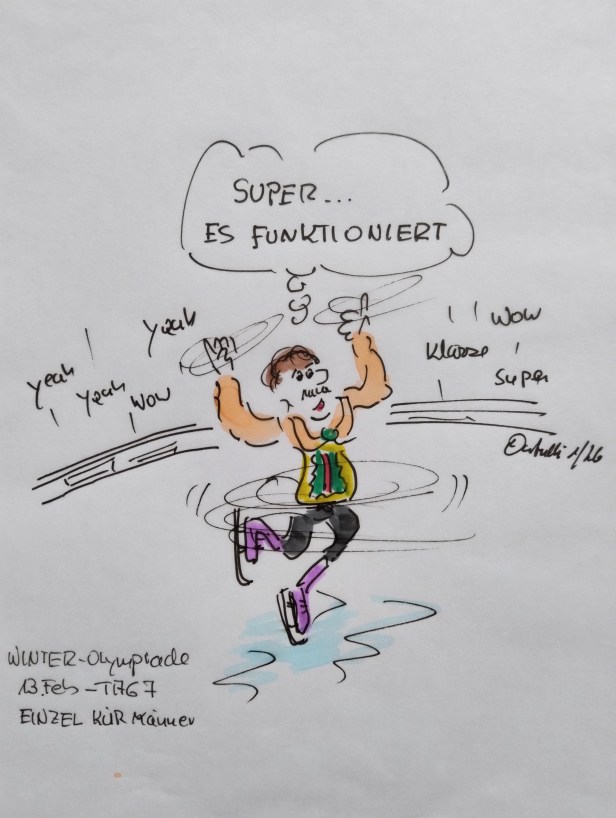 SUPER...
ES FUNKTIONIERT
yeah
yeah
yeah
WOW
WOW
Klasse
Super
1/26
WINTER-Olympiade
13.Feb - TAG 7
EINZEL KÜR Männer